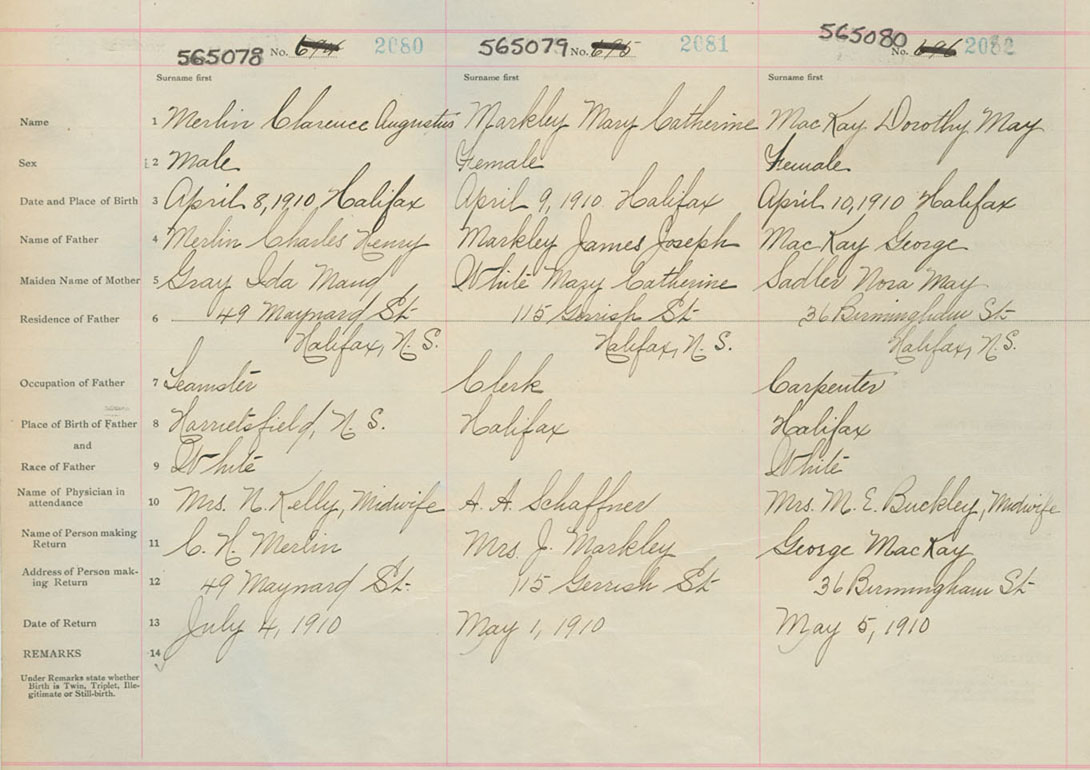 565078 No. 694 2080 565079 No. 695 2081 565080 No. 696 2082
Surname first Surname first Surname first
Name 1 Merlin Clarence Augustus Markley Mary Catherine MacKay Dorothy May
Sex 2 Male Female Female
Date and Place of Birth 3 April 8, 1910, Halifax April 9, 1910 Halifax April 10, 1910 Halifax
Name of Father 4 Merlin Charles Henry Markley James Joseph MacKay George
Maiden Name of Mother 5 Gray Ida Maud White Mary Catherine Sadler Nora May
Residence of Father 6 49 Maynard St 115 Gerrish St 36 Birmingham St
Halifax, N.S. Halifax, N.S. Halifax, N.S.
Occupation of Father 7 Teamster Clerk Carpenter
Place of Birth of Father 8 Harrietsfield, N.S. Halifax Halifax
and
Race of Father 9 White White
Name of Physician in
attendance 10 Mrs. N. Kelly, Midwife A. A. Schaffner Mrs. M. E. Buckley, Midwife
Name of Person making
Return 11 C. H. Merlin Mrs J. Markley George MacKay
Address of Person mak-
ing Return 12 49 Maynard St. 115 Gerrish St 36 Birmingham St
Date of Return 13 July 4, 1910 May 1, 1910 May 5, 1910
REMARKS 14
Under Remarks state whether
Birth is Twin, Triplet, Ille-
gitimate or Still-birth.